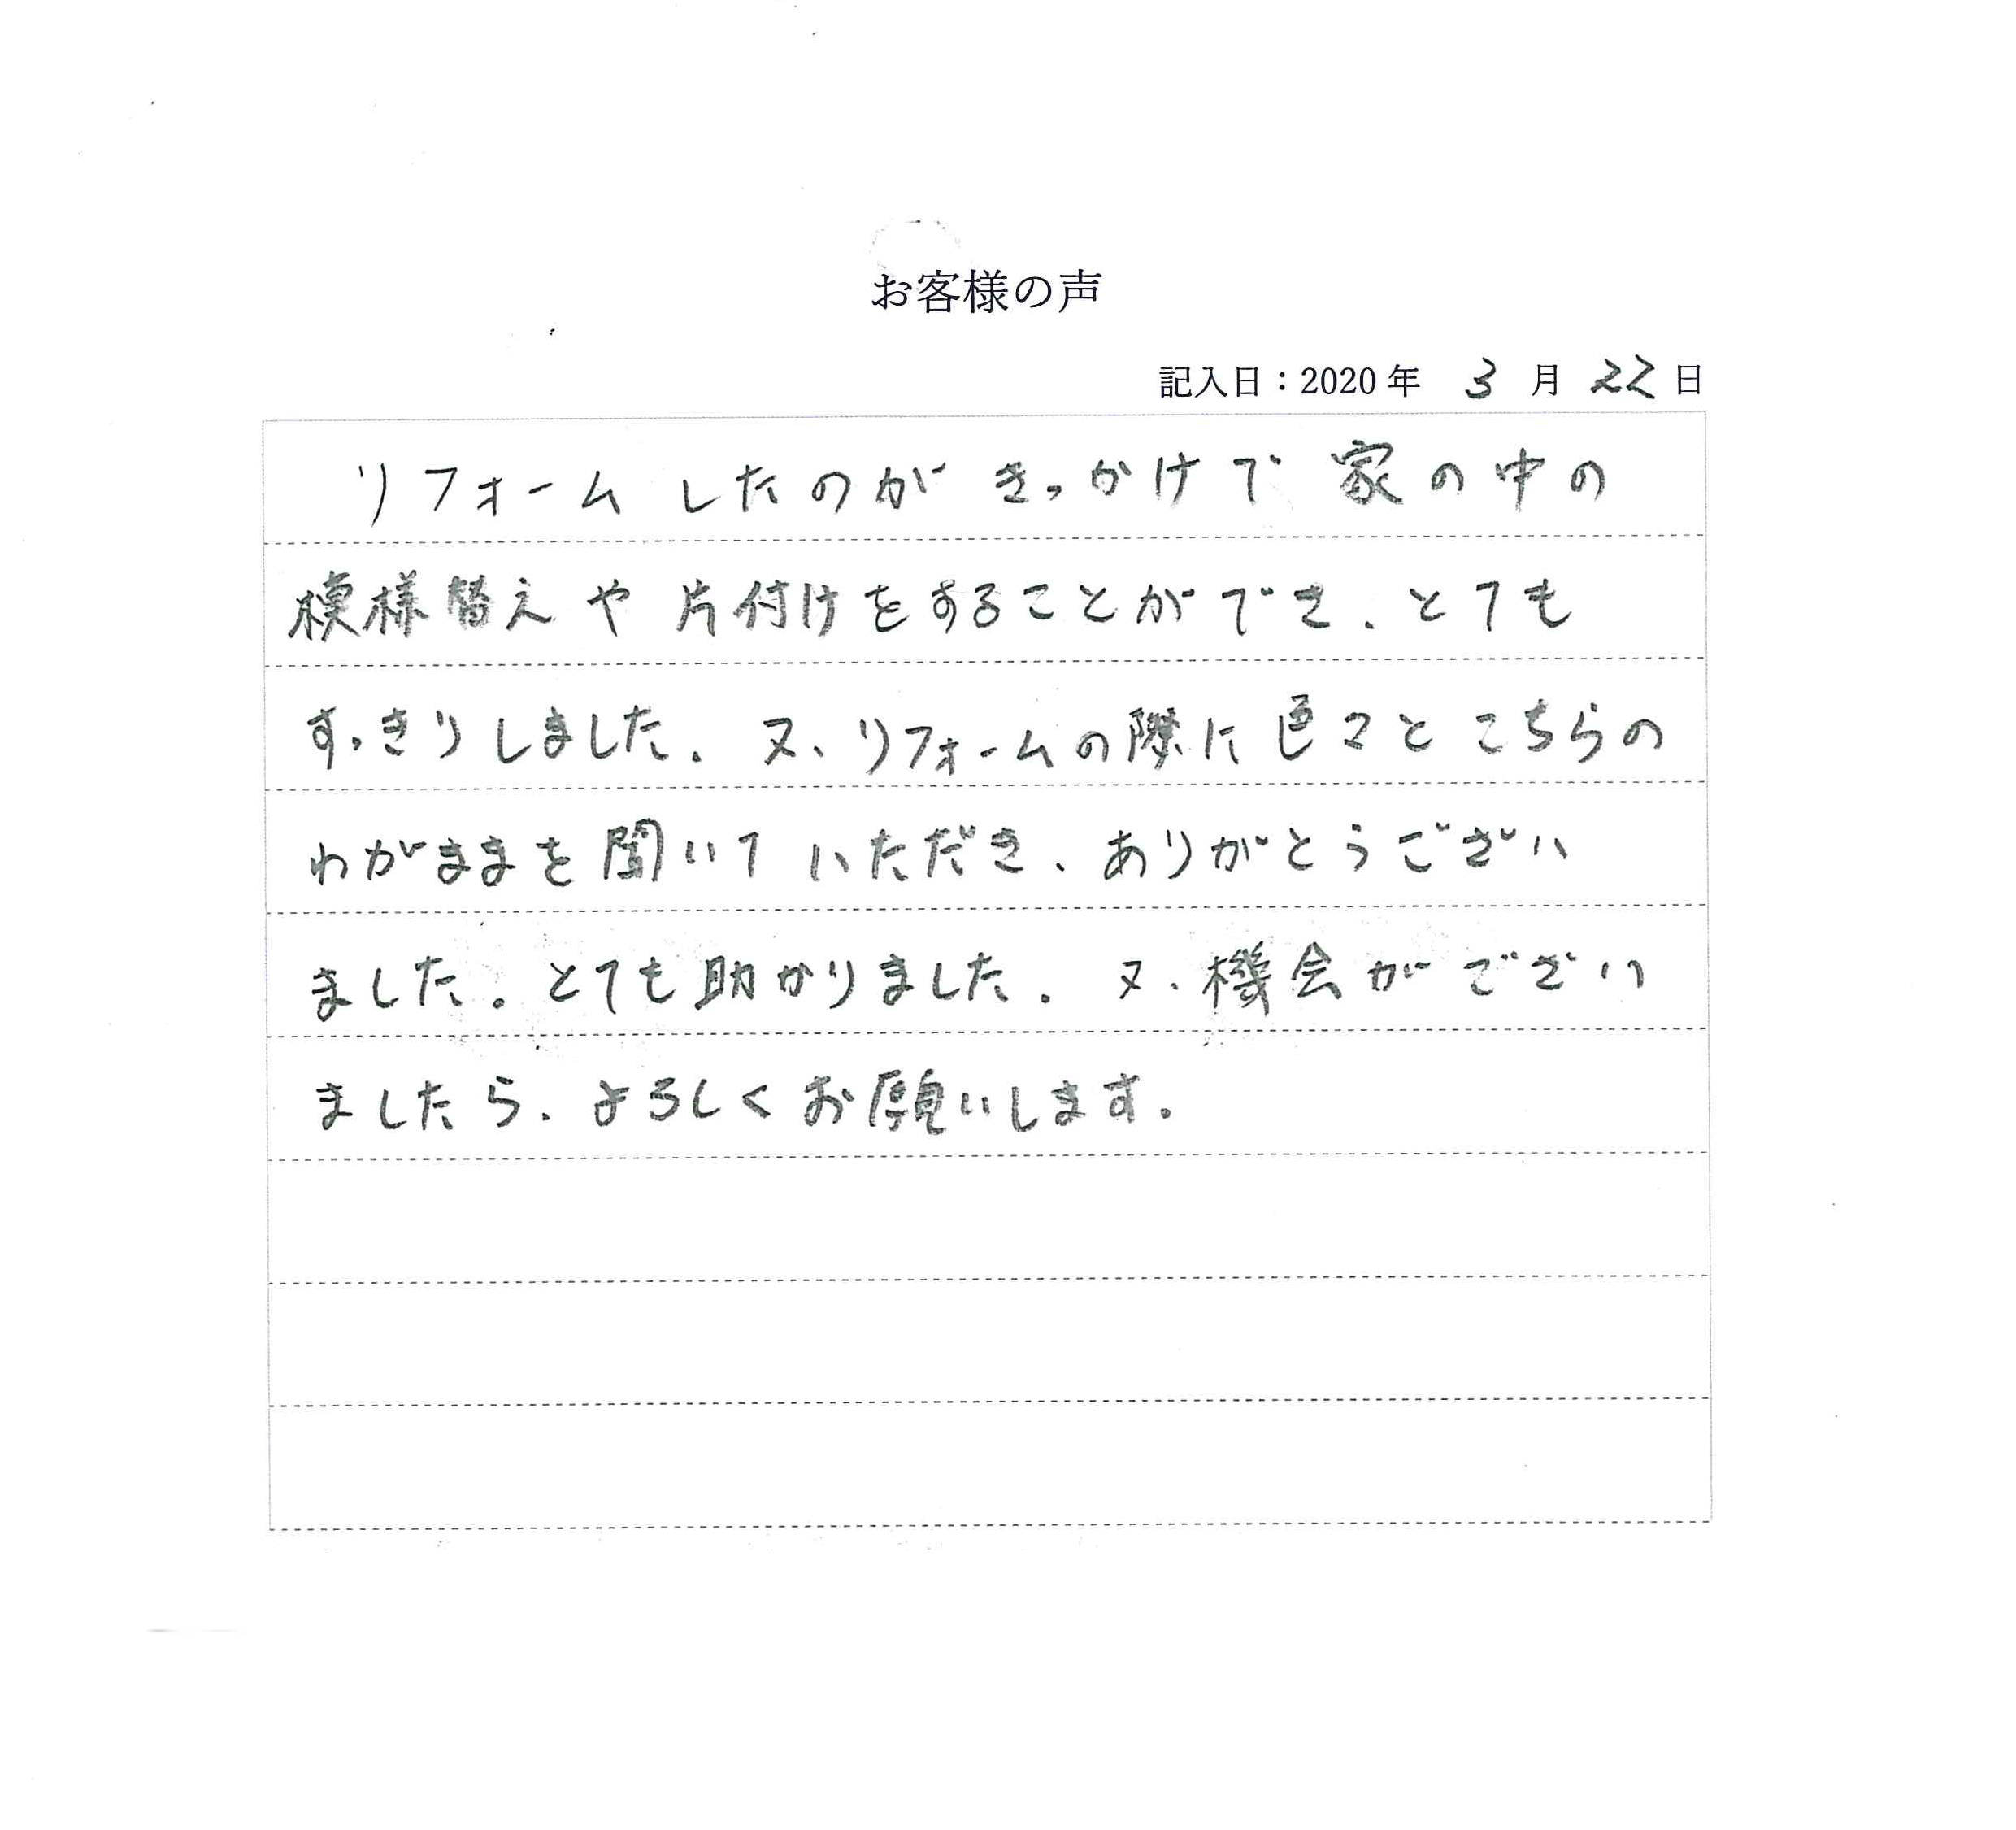 お客様の声
記入日：2020年 3月 22日
リフォームしたのがきっかけで家の中の
模様替えや片付けをすることができ、とても
すっきりしました。又、リフォームの際に色々とこちらの
わがままを聞いていただき、ありがとうござい
ました。とても助かりました。又、機会がござい
ましたら、よろしくお願いします。